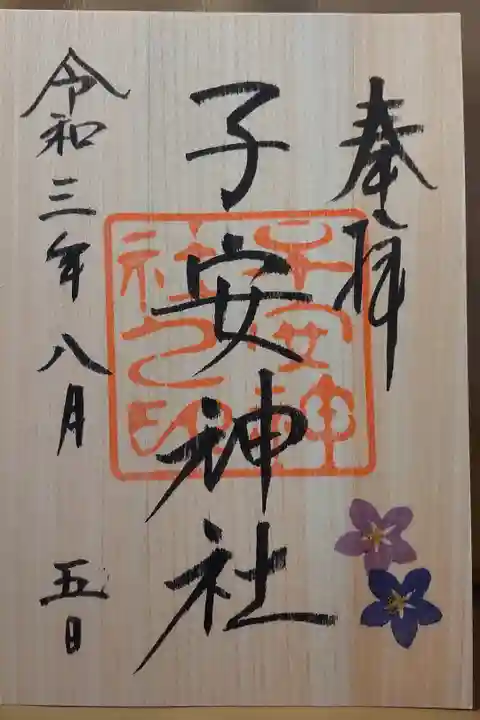 奉拝
子安神社
子安神社之印
令和三年八月 五日